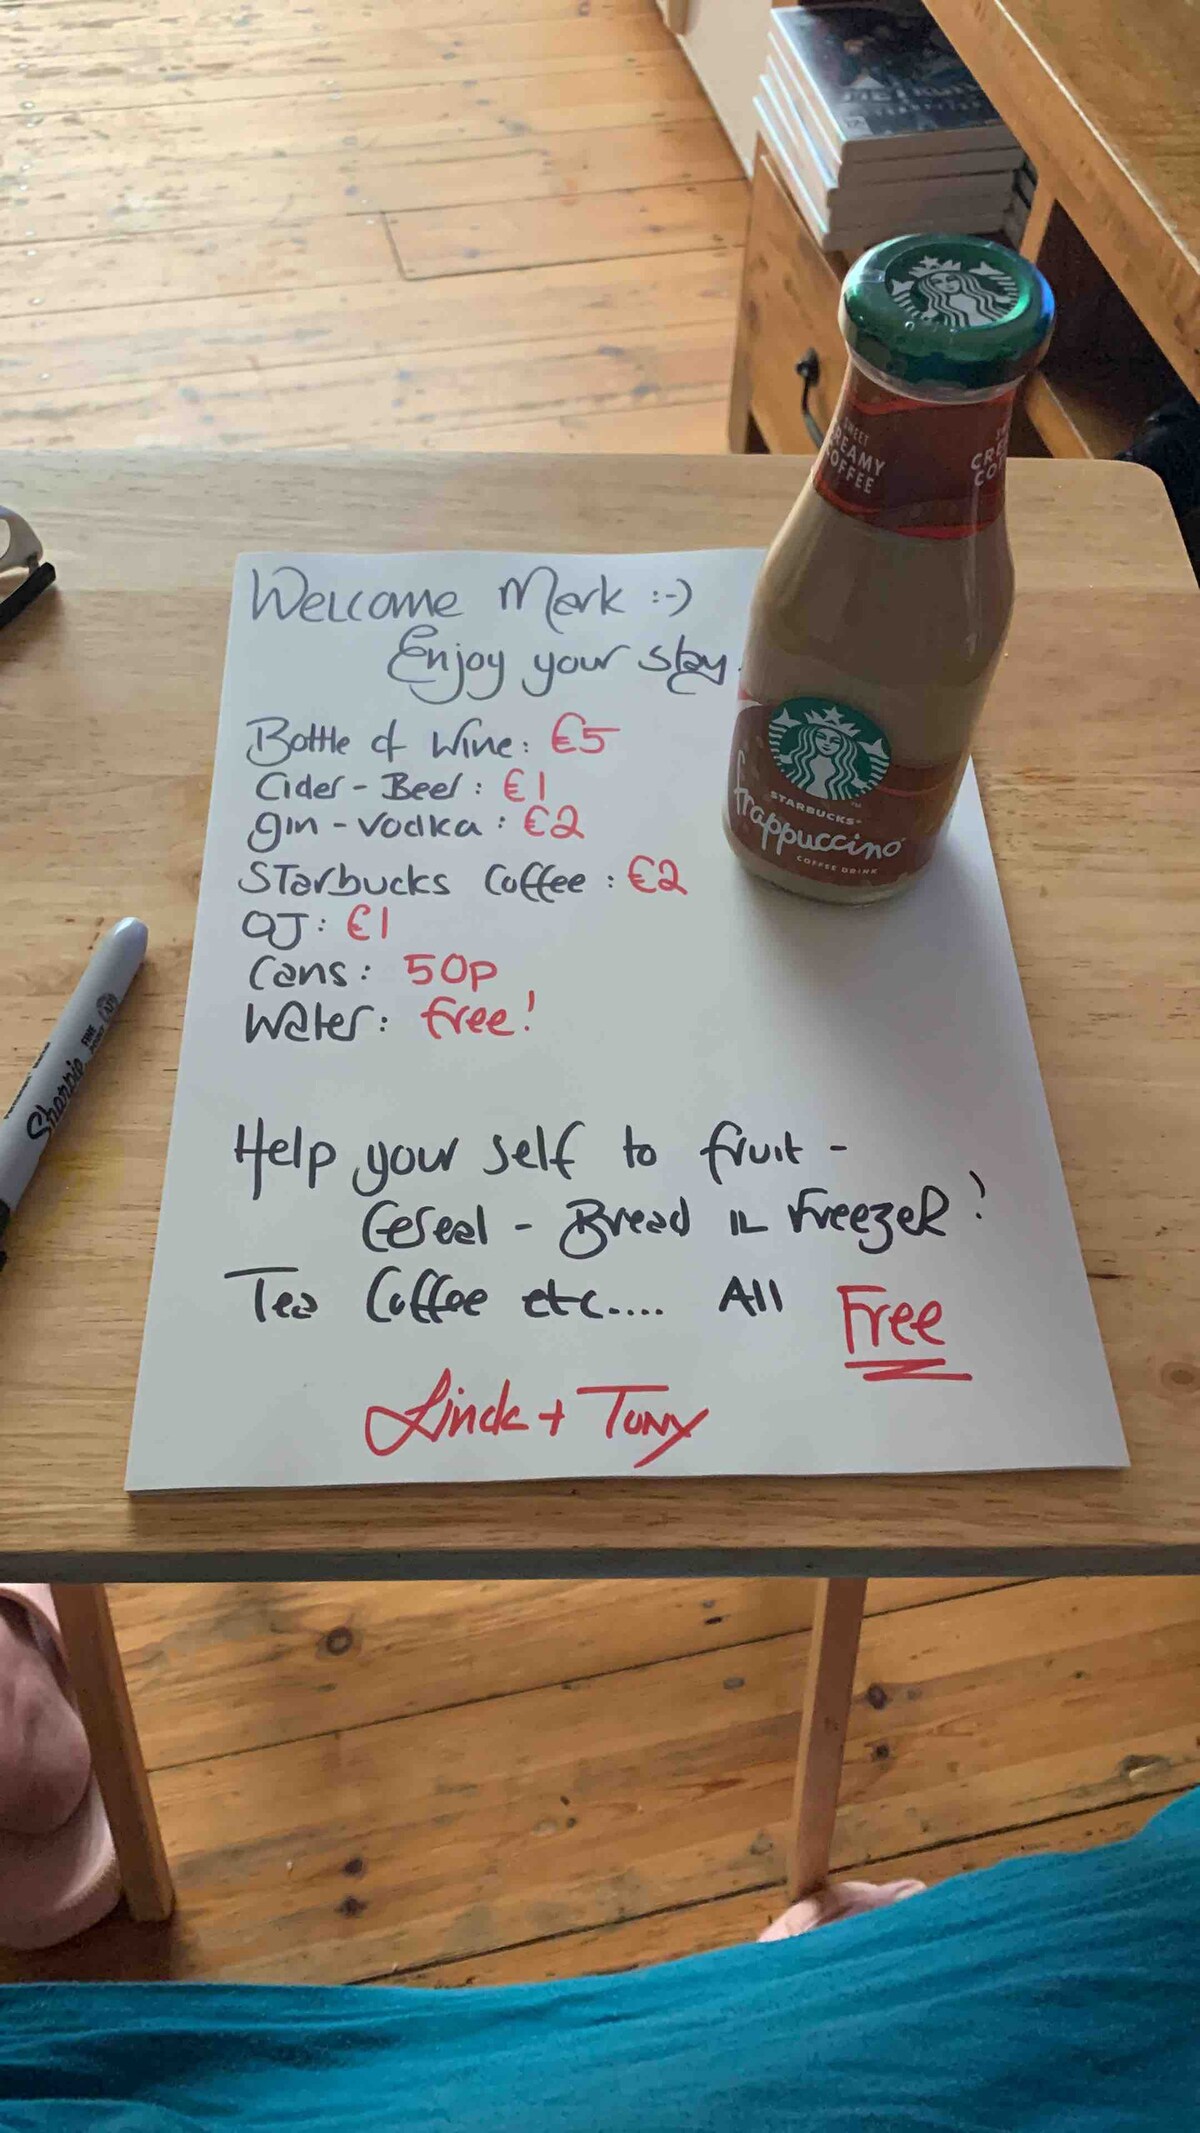 Welcome Mark :-)
Enjoy your stay.
Bottle of Wine: €5
Cider - Beer: €1
gin - vodka: €2
Starbucks Coffee: €2
OJ: €1
Cans: 50p
Water: free!
Help your self to fruit -
Cereal - Bread in Freezer!
Tea Coffee etc.... All Free
Linda + Tony
SWEET
CREAMY
COFFEE
STARBUCKS™
frappuccino
COFFEE DRINK
Sharpie
FINE
POINT